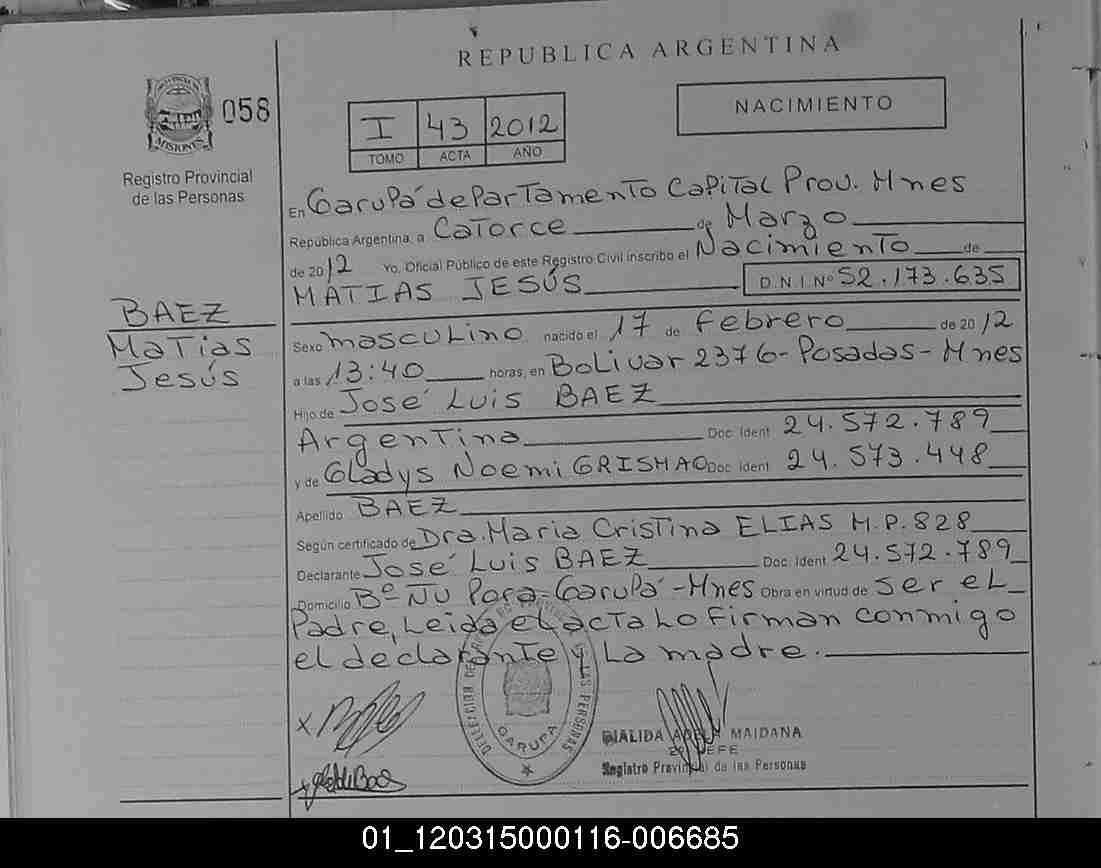 REPUBLICA ARGENTINA
PROVINCIA DE MISIONES
058
Registro Provincial
de las Personas
I 43 2012
TOMO ACTA AÑO
NACIMIENTO
En Garupá departamento Capital Prov. Mnes
República Argentina, a Catorce de Marzo
de 2012 Yo, Oficial Público de este Registro Civil inscribo el Nacimiento de
MATIAS JESÚS D.N.I.Nº 52.173.635
BAEZ
Matias
Jesús
Sexo masculino nacido el 17 de Febrero de 2012
a las 13:40 horas, en Bolivar 2376-Posadas-Mnes
Hijo de José Luis BAEZ
Argentina Doc. Ident 24.572.789
y de Gladys Noemi GRISMAO Doc. Ident 24.573.448
Apellido BAEZ
Según certificado de Dra. Maria Cristina ELIAS M.P.828
Declarante José Luis BAEZ Doc. Ident 24.572.789
Domicilio Bº Ñu Pora-Garupá-Mnes Obra en virtud de ser el
Padre, Leida el acta Lo Firman conmigo
el declarante y La madre.
REGISTRO PROVINCIAL DE LAS PERSONAS
GARUPA
MAIDANA
JEFE
Registro Provincial de las Personas
01_120315000116-006685